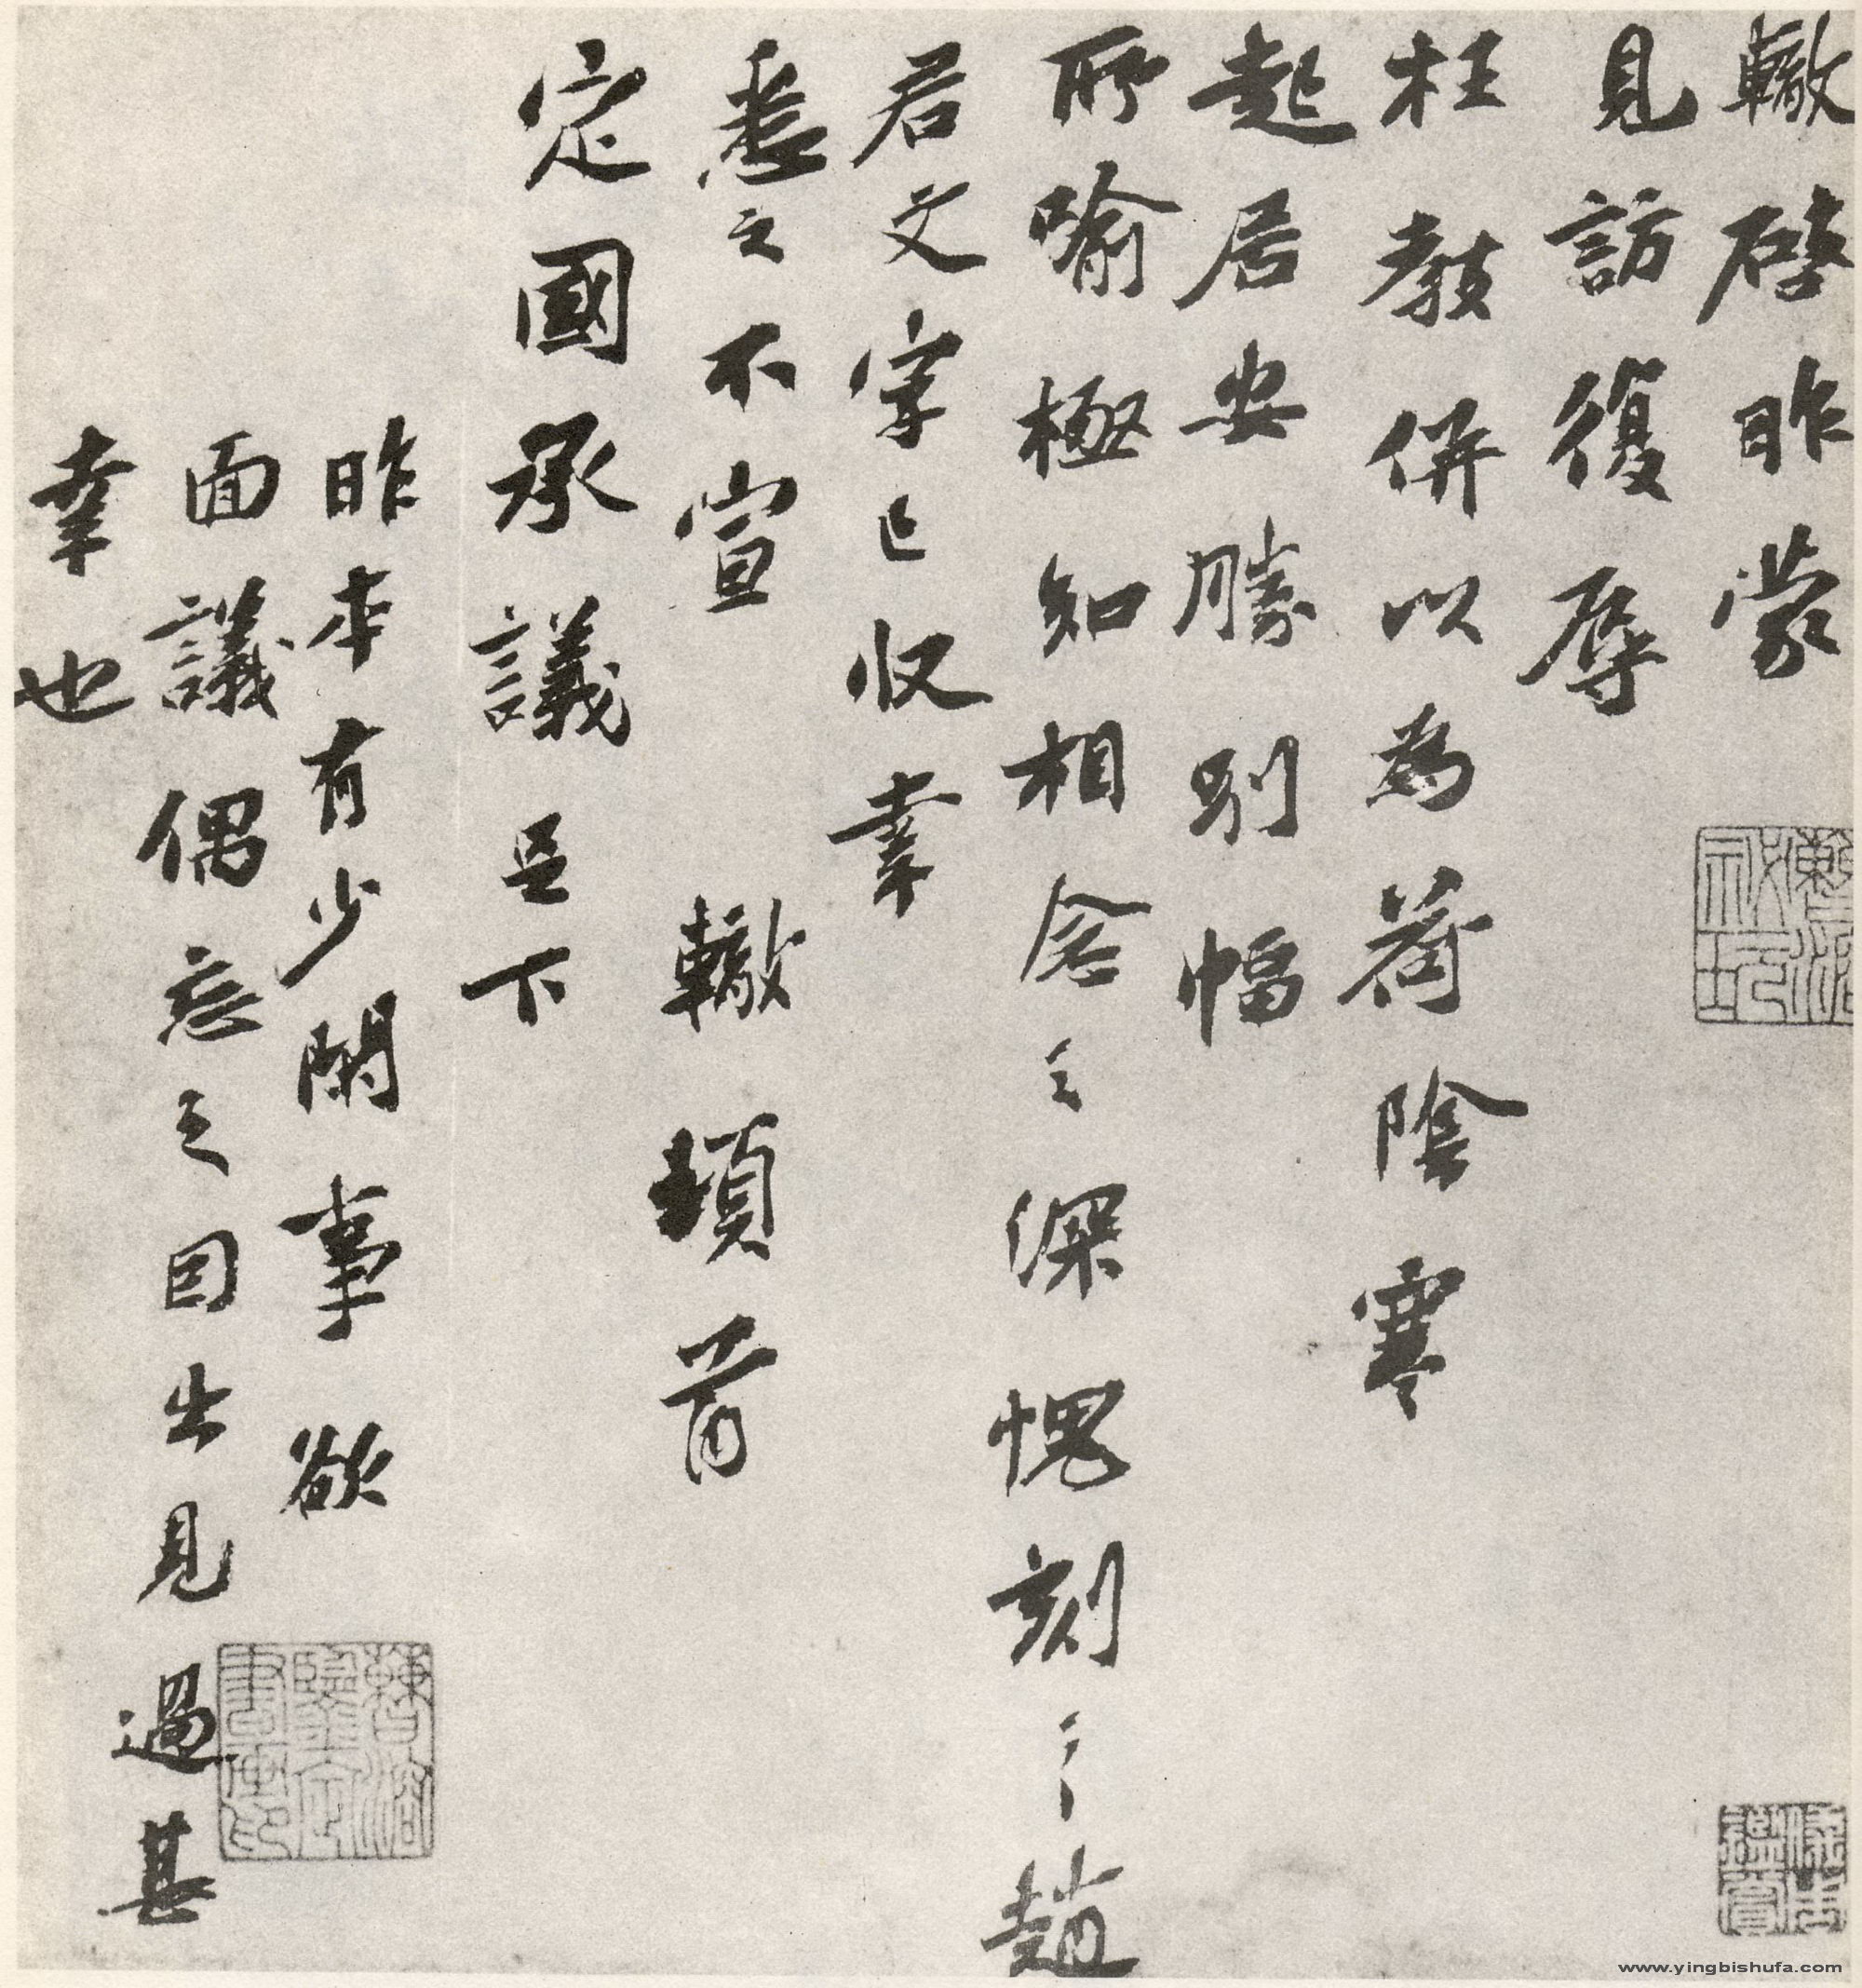 轍啓昨蒙
見訪復辱
枉教併以為荷陰寒
起居安勝別幅
所喻極知相念之深愧刻〻趙
君文字已收幸
悉之不宣 轍頓首
定國承議足下
昨本有少閑事欲
面議偶忘之因出見過甚
幸也
www.yingbishufa.com